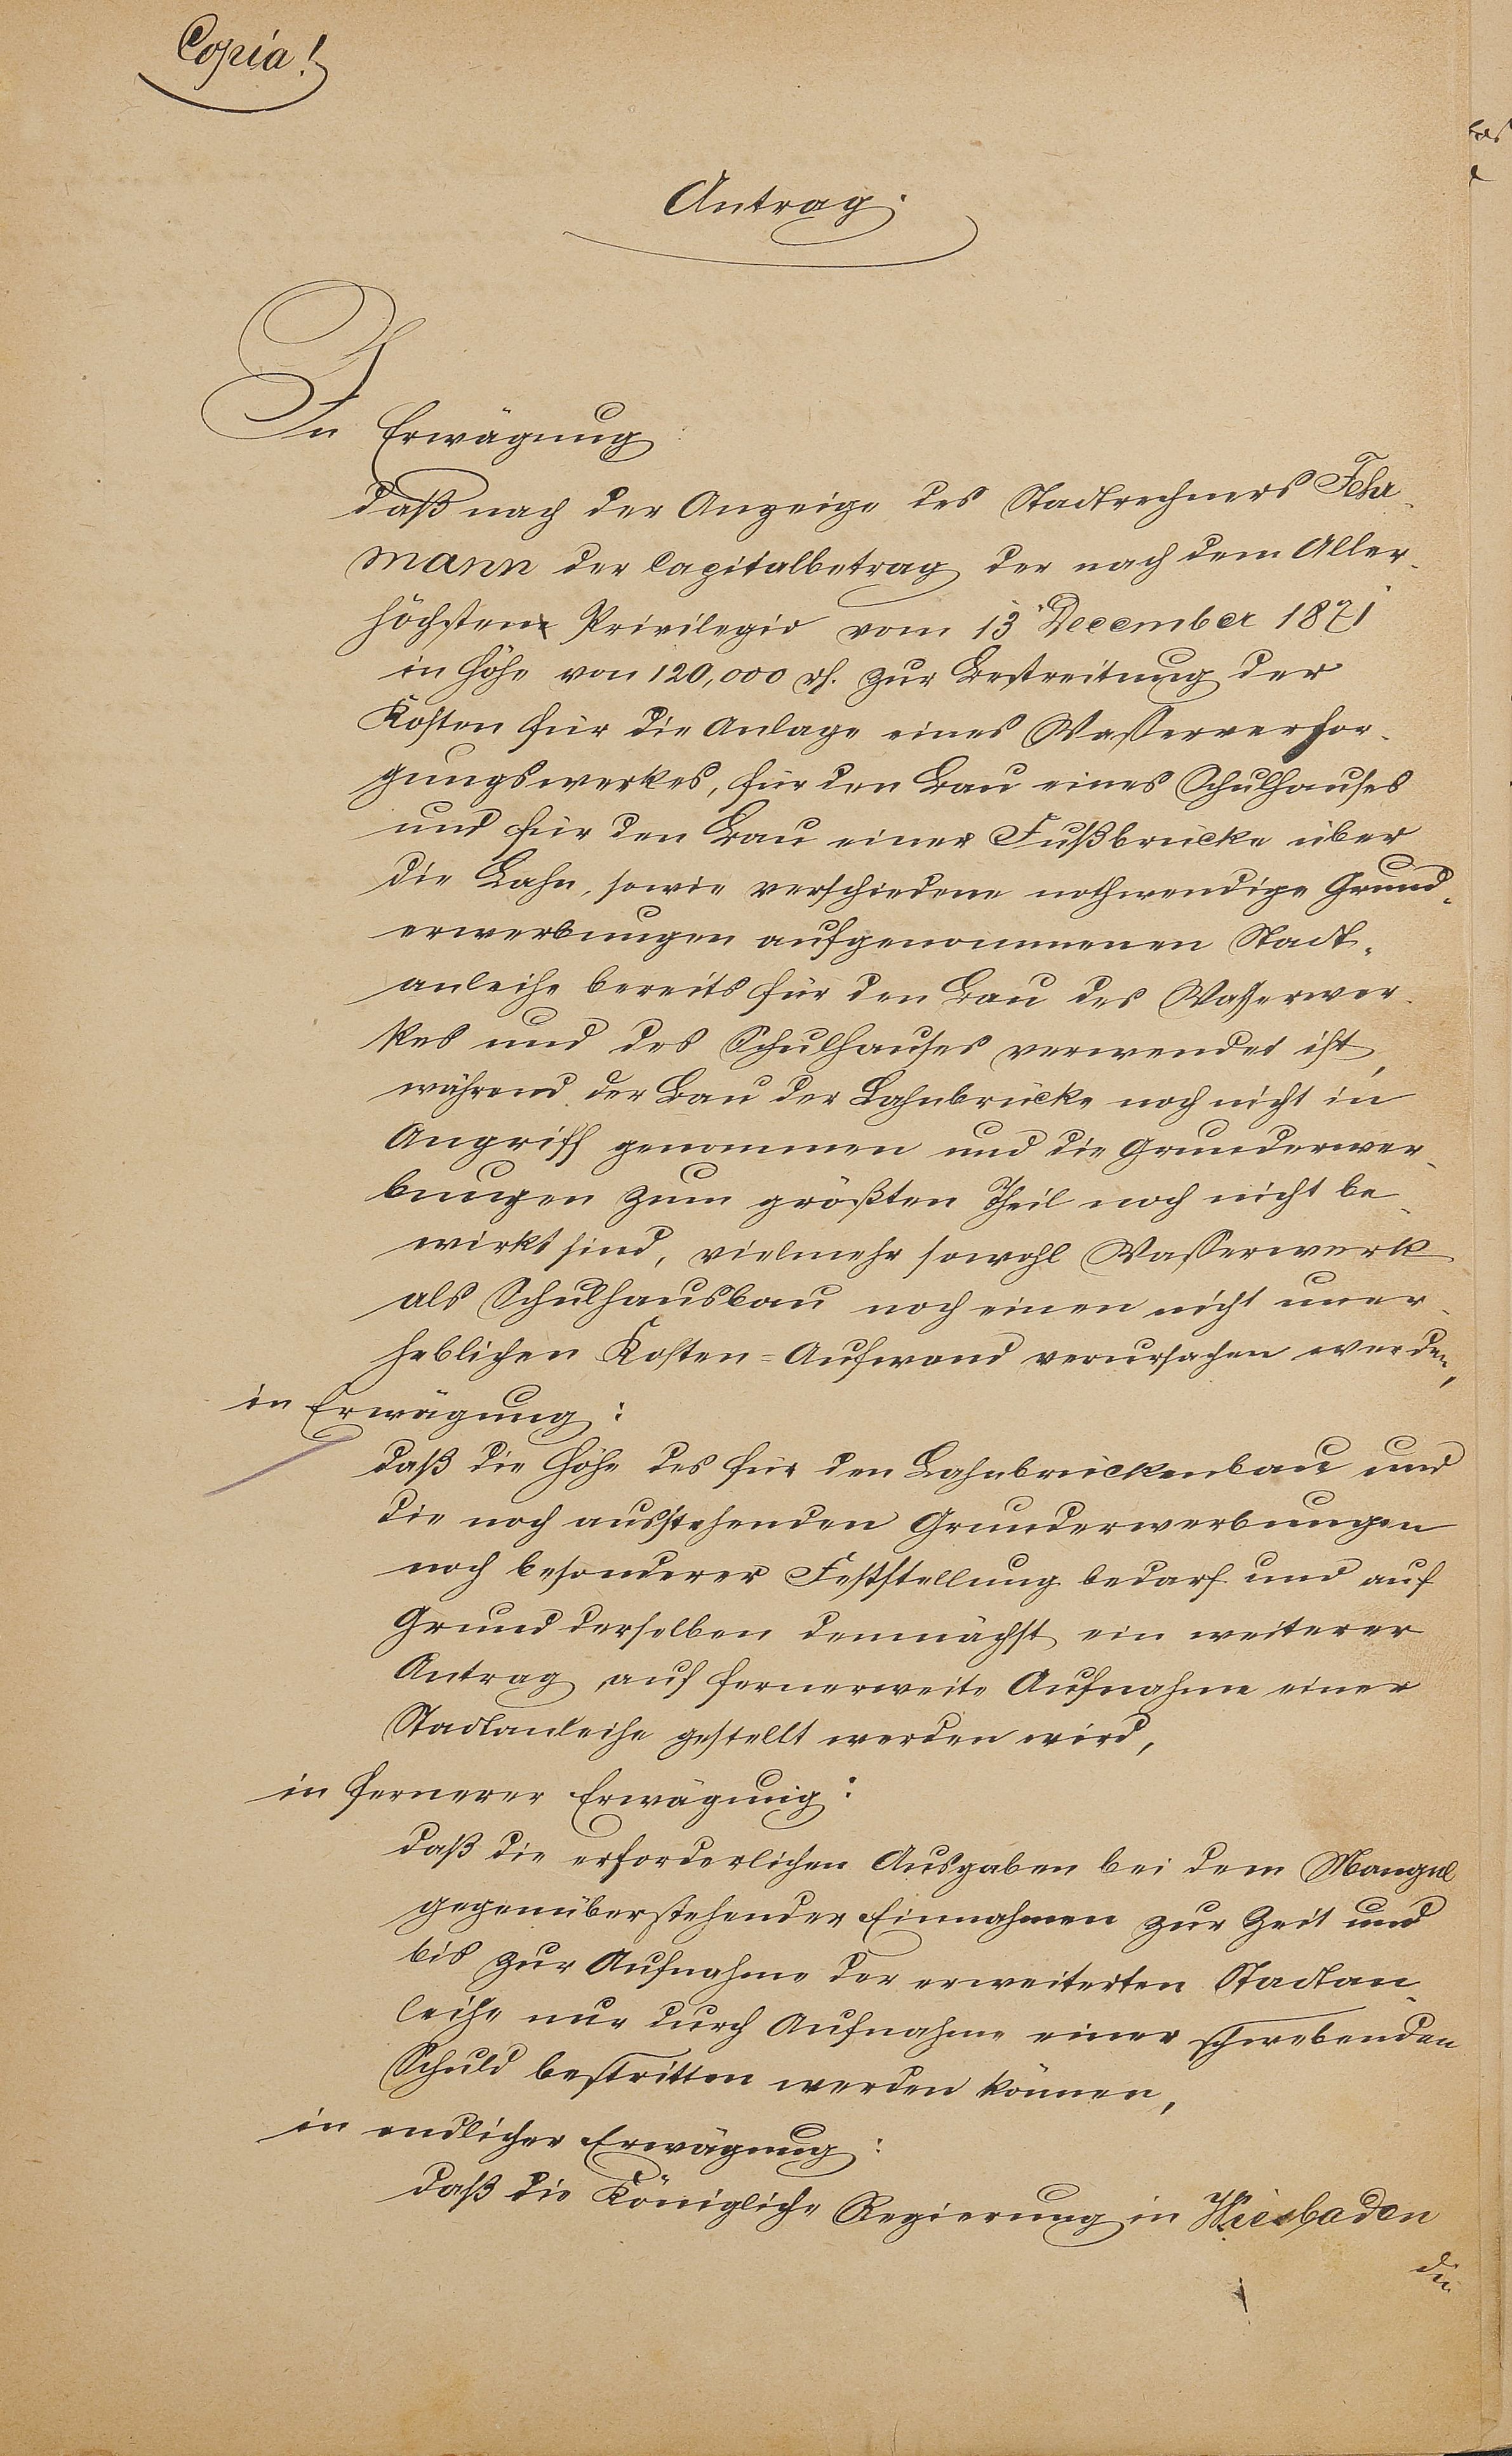 Copia!
Antrag.
In Erwägung:
daß nach der Anzeige des Stadtrechners Fehr-
mann der Capitalbetrag der nach dem Aller-
höchsten Privilegio vom 13 December 1871
in Höhe von 120,000 rℓ. zur Bestreitung der
Kosten für die Anlage eines Wasserversor-
gungswerkes, für den Bau eines Schulhauses
und für den Bau einer Fußbrücke über
die Lahn, sowie verschiedene nothwendige Grund-
erwerbungen aufgenommenen Stadt-
anleihe bereits für den Bau des Wasserwer-
kes und des Schulhauses verwendet ist,
während der Bau der Lahnbrücke noch nicht in
Angriff genommen und die Grunderwer-
bungen zum größten Theil noch nicht be-
wirkt sind, vielmehr sowohl Wasserwerk
als Schulhausbau noch einen nicht uner-
heblichen Kosten-Aufwand verursachen werden,
in Erwägung:
daß die Höhe des für den Lahnbrückenbau und
die noch ausstehenden Grunderwerbungen
noch besonderer Feststellung bedarf und auf
Grund derselben demnächst ein weiterer
Antrag auf fernerweite Aufnahme einer
Stadtanleihe gestellt werden wird,
in fernerer Erwägung:
daß die erforderlichen Ausgaben bei dem Mangel
gegenüberstehender Einnahmen zur Zeit und
bis zur Aufnahme der erweiterten Stadtan-
leihe nur durch Aufnahme einer schwebenden
Schuld bestritten werden können,
in endlicher Erwägung:
daß die Königliche Regierung in Wiesbaden
die